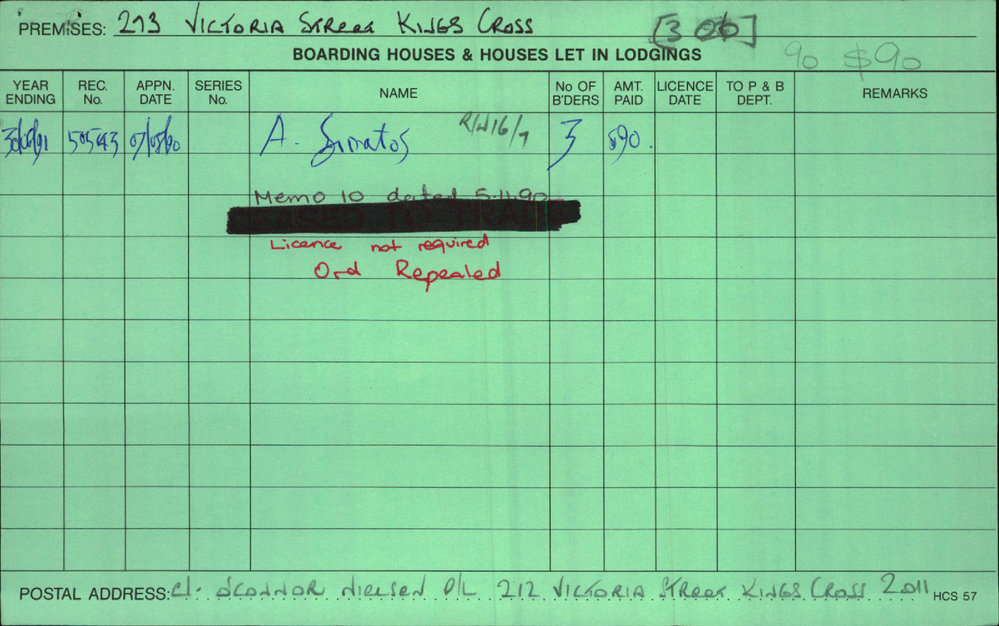 PREMISES: 273 VICTORIA STREET KINGS CROSS [3 OB]
BOARDING HOUSES & HOUSES LET IN LODGINGS 90 $90
YEAR ENDING REC. No. APPN. DATE SERIES No. NAME No OF B'DERS AMT. PAID LICENCE DATE TO P & B DEPT. REMARKS
30/06/91 50543 07/05/90 A. 3 $90.
Memo 10 dated 5.11.90
Licence not required
Ord Repealed
POSTAL ADDRESS: C/- O'CONNOR NIELSEN P/L 212 VICTORIA STREET KINGS CROSS 2011 HCS 57